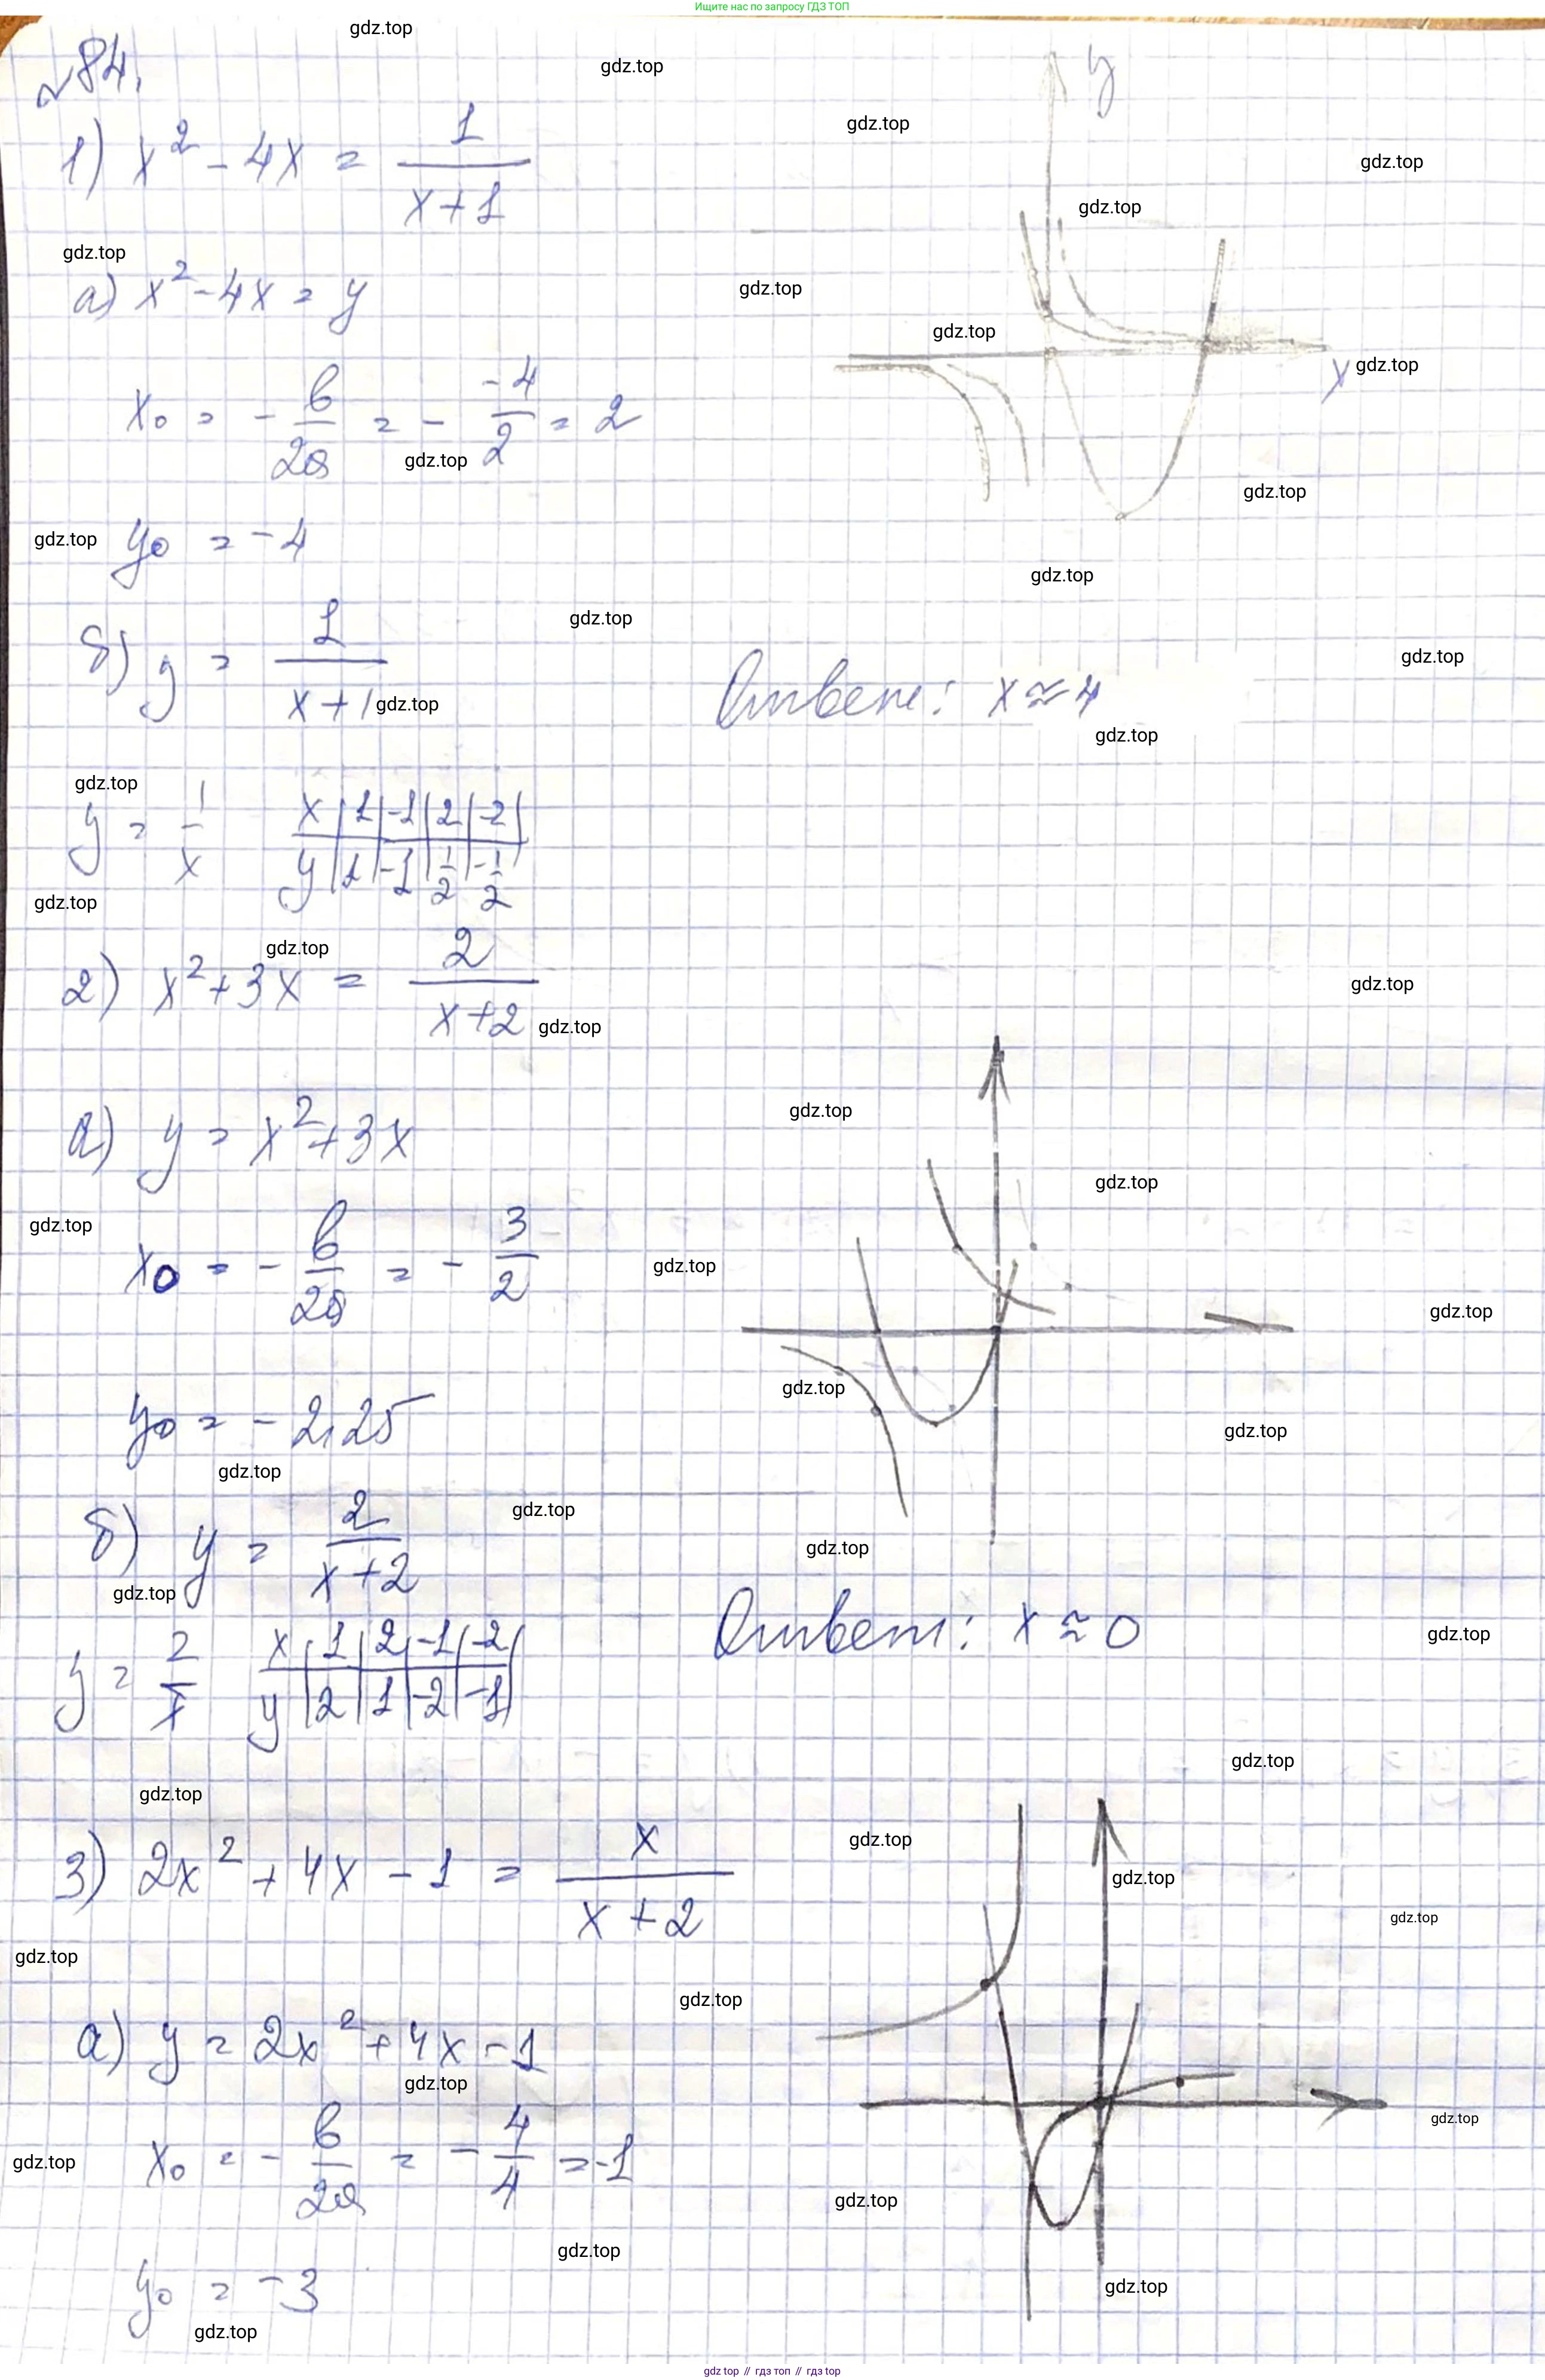 Ищите нас по запросу ГДЗ ТОП
№84.
1) x² - 4x = 1/(x+1)
а) x² - 4x = y
x₀ = - b/2a = - -4/2 = 2
y₀ = -4
б) y = 1/(x+1)
y = 1/x
x | 1 | -1 | 2 | -2 |
y | 1 | -1 | 1/2 | -1/2
y
x
Ответ: x ≈ 4
2) x² + 3x = 2/(x+2)
а) y = x² + 3x
x₀ = - b/2a = - 3/2
y₀ = -2,25
б) y = 2/(x+2)
y = 2/x
x | 1 | 2 | -1 | -2
y | 2 | 1 | -2 | -1
Ответ: x ≈ 0
3) 2x² + 4x - 1 = x/(x+2)
а) y = 2x² + 4x - 1
x₀ = - b/2a = - 4/4 = -1
y₀ = -3
gdz.top
gdz top // гдз топ // гдз top